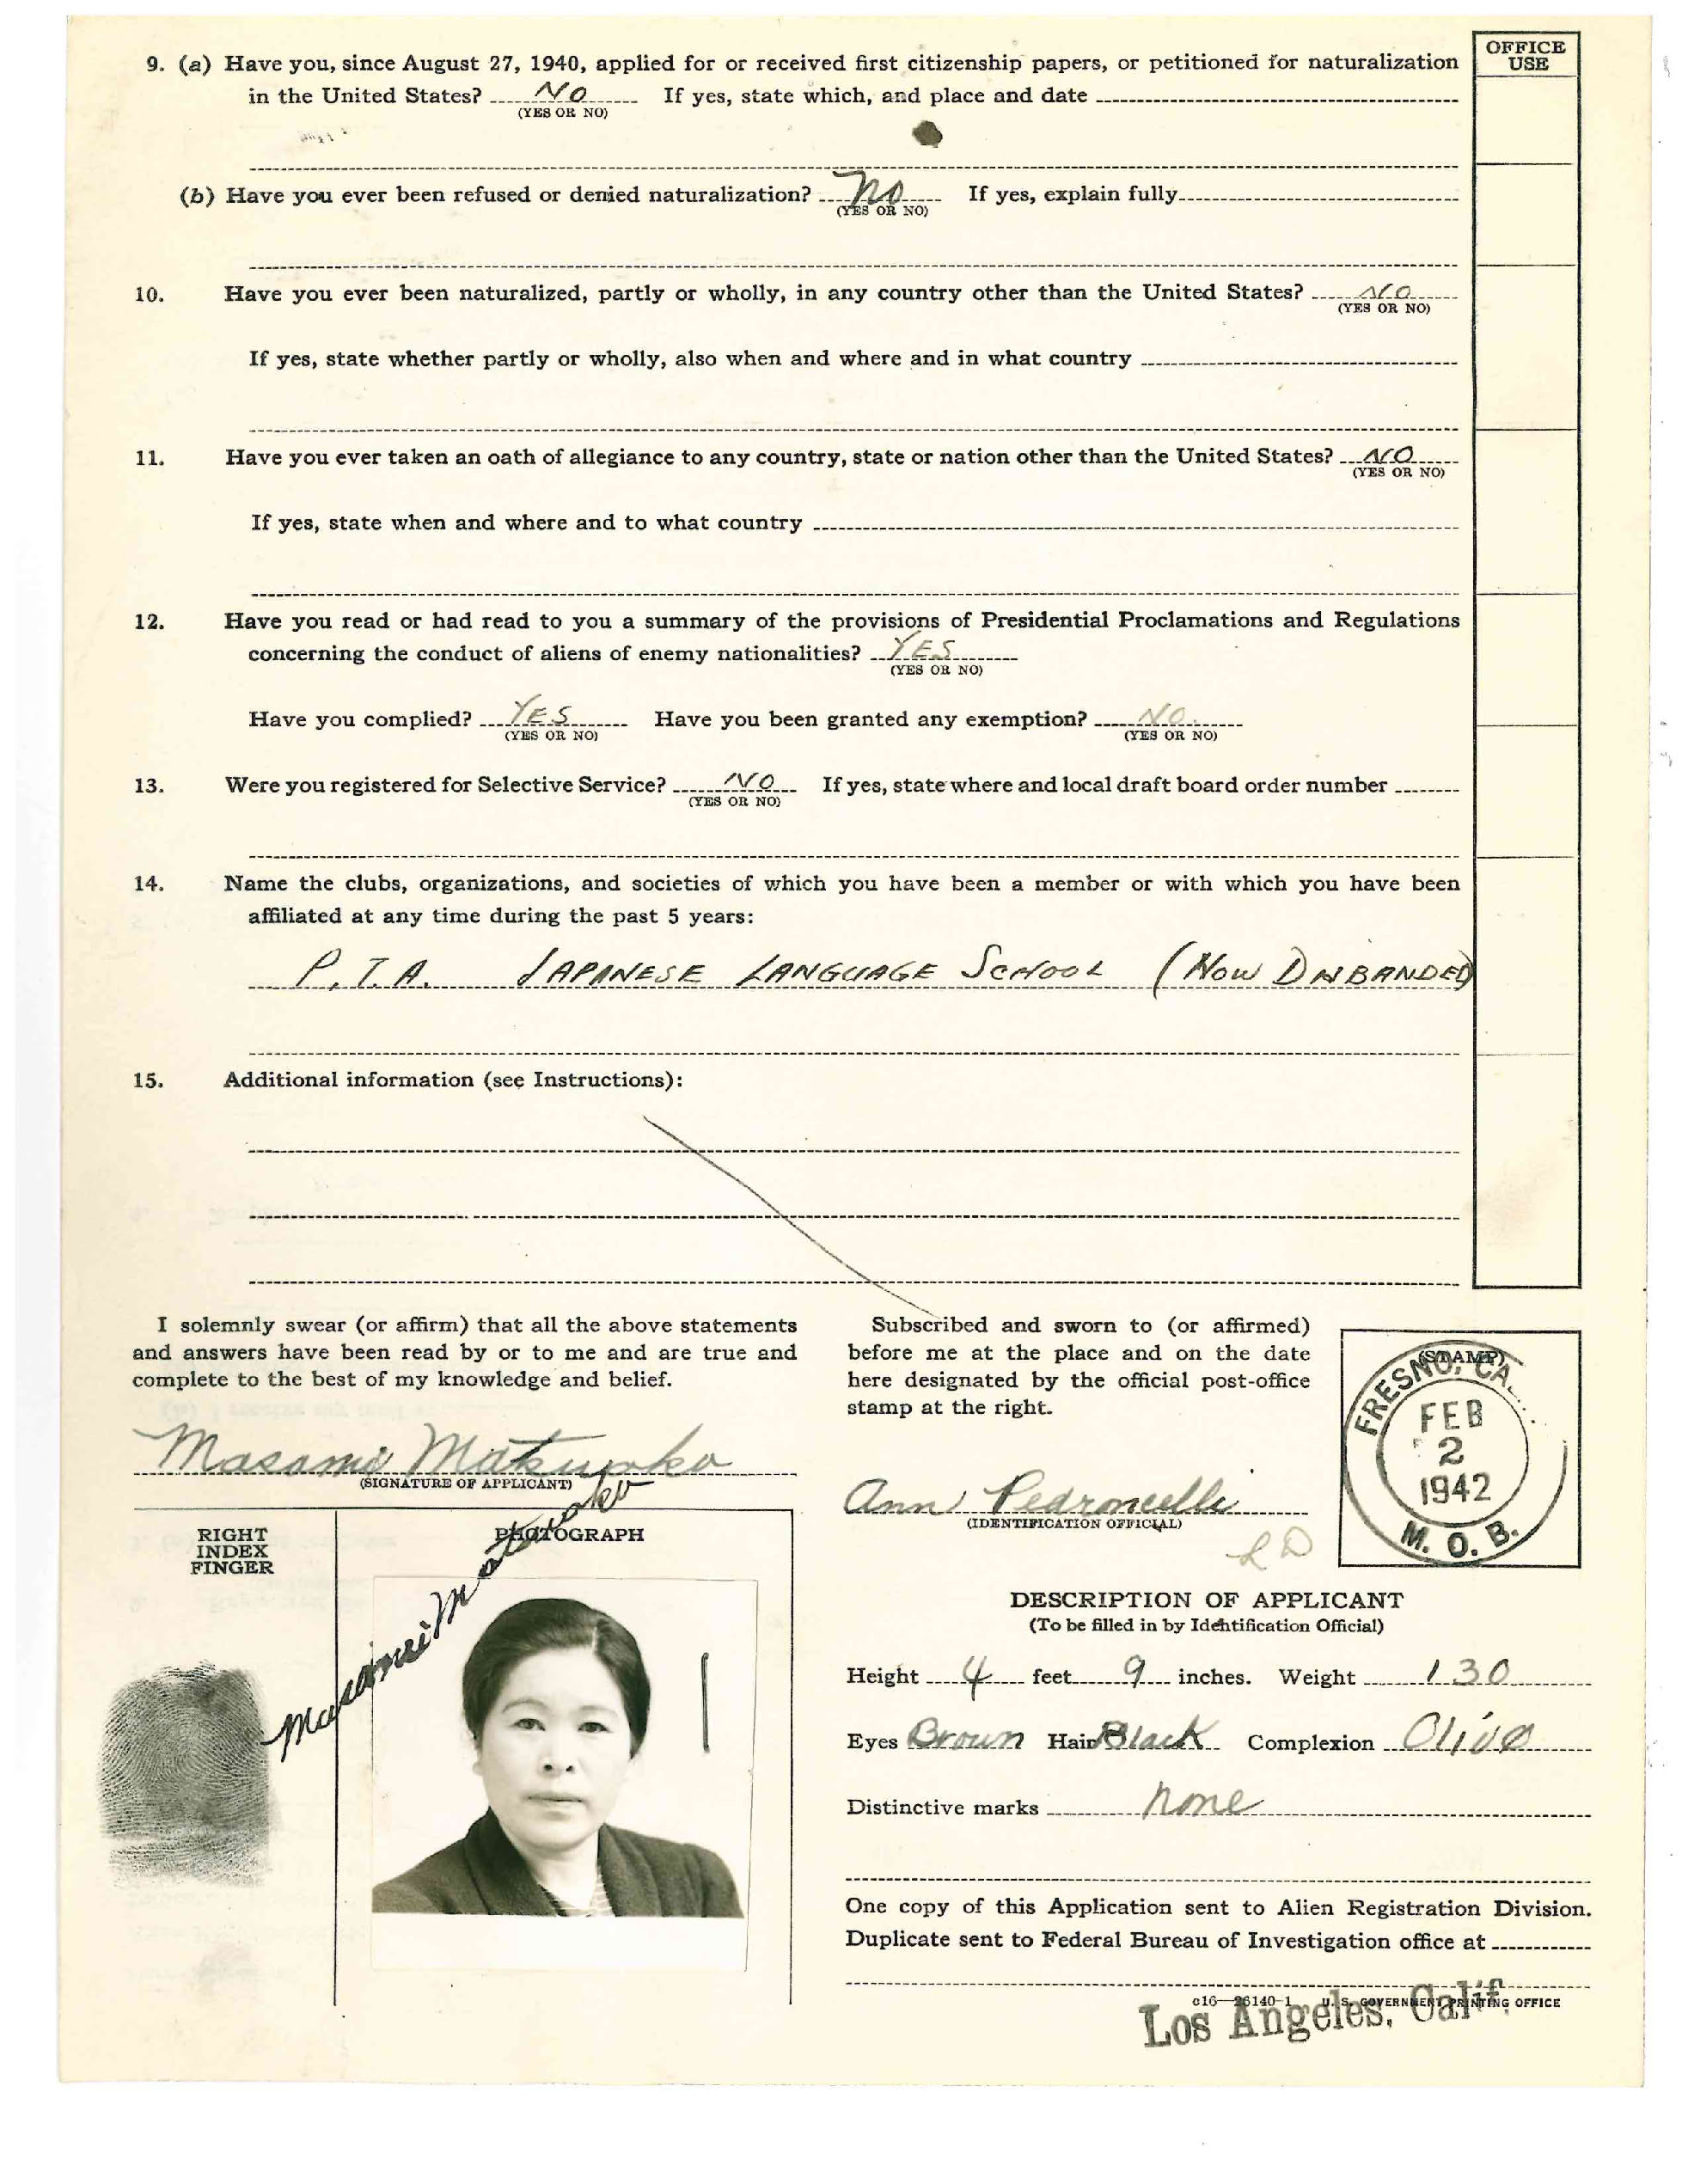 OFFICE USE
9. (a) Have you, since August 27, 1940, applied for or received first citizenship papers, or petitioned for naturalization
in the United States? NO If yes, state which, and place and date
(YES OR NO)
(b) Have you ever been refused or denied naturalization? no If yes, explain fully
(YES OR NO)
10. Have you ever been naturalized, partly or wholly, in any country other than the United States? NO
(YES OR NO)
If yes, state whether partly or wholly, also when and where and in what country
11. Have you ever taken an oath of allegiance to any country, state or nation other than the United States? NO
(YES OR NO)
If yes, state when and where and to what country
12. Have you read or had read to you a summary of the provisions of Presidential Proclamations and Regulations
concerning the conduct of aliens of enemy nationalities? YES
(YES OR NO)
Have you complied? YES Have you been granted any exemption? NO.
(YES OR NO) (YES OR NO)
13. Were you registered for Selective Service? NO If yes, state where and local draft board order number
(YES OR NO)
14. Name the clubs, organizations, and societies of which you have been a member or with which you have been
affiliated at any time during the past 5 years:
P.T.A. JAPANESE LANGUAGE SCHOOL (NOW DISBANDED)
15. Additional information (see Instructions):
I solemnly swear (or affirm) that all the above statements
and answers have been read by or to me and are true and
complete to the best of my knowledge and belief.
Masami Matsuoka
(SIGNATURE OF APPLICANT)
Subscribed and sworn to (or affirmed)
before me at the place and on the date
here designated by the official post-office
stamp at the right.
Ann Pedroncelli
(IDENTIFICATION OFFICIAL)
(STAMP)
FRESNO, CA.
FEB
2
1942
M. O. B.
RIGHT
INDEX
FINGER
PHOTOGRAPH
Masami Matsuoka
DESCRIPTION OF APPLICANT
(To be filled in by Identification Official)
Height 4 feet 9 inches. Weight 130
Eyes Brown Hair Black Complexion Olive
Distinctive marks none
One copy of this Application sent to Alien Registration Division.
Duplicate sent to Federal Bureau of Investigation office at
c16—26140-1 U. S. GOVERNMENT PRINTING OFFICE
Los Angeles, Calif.